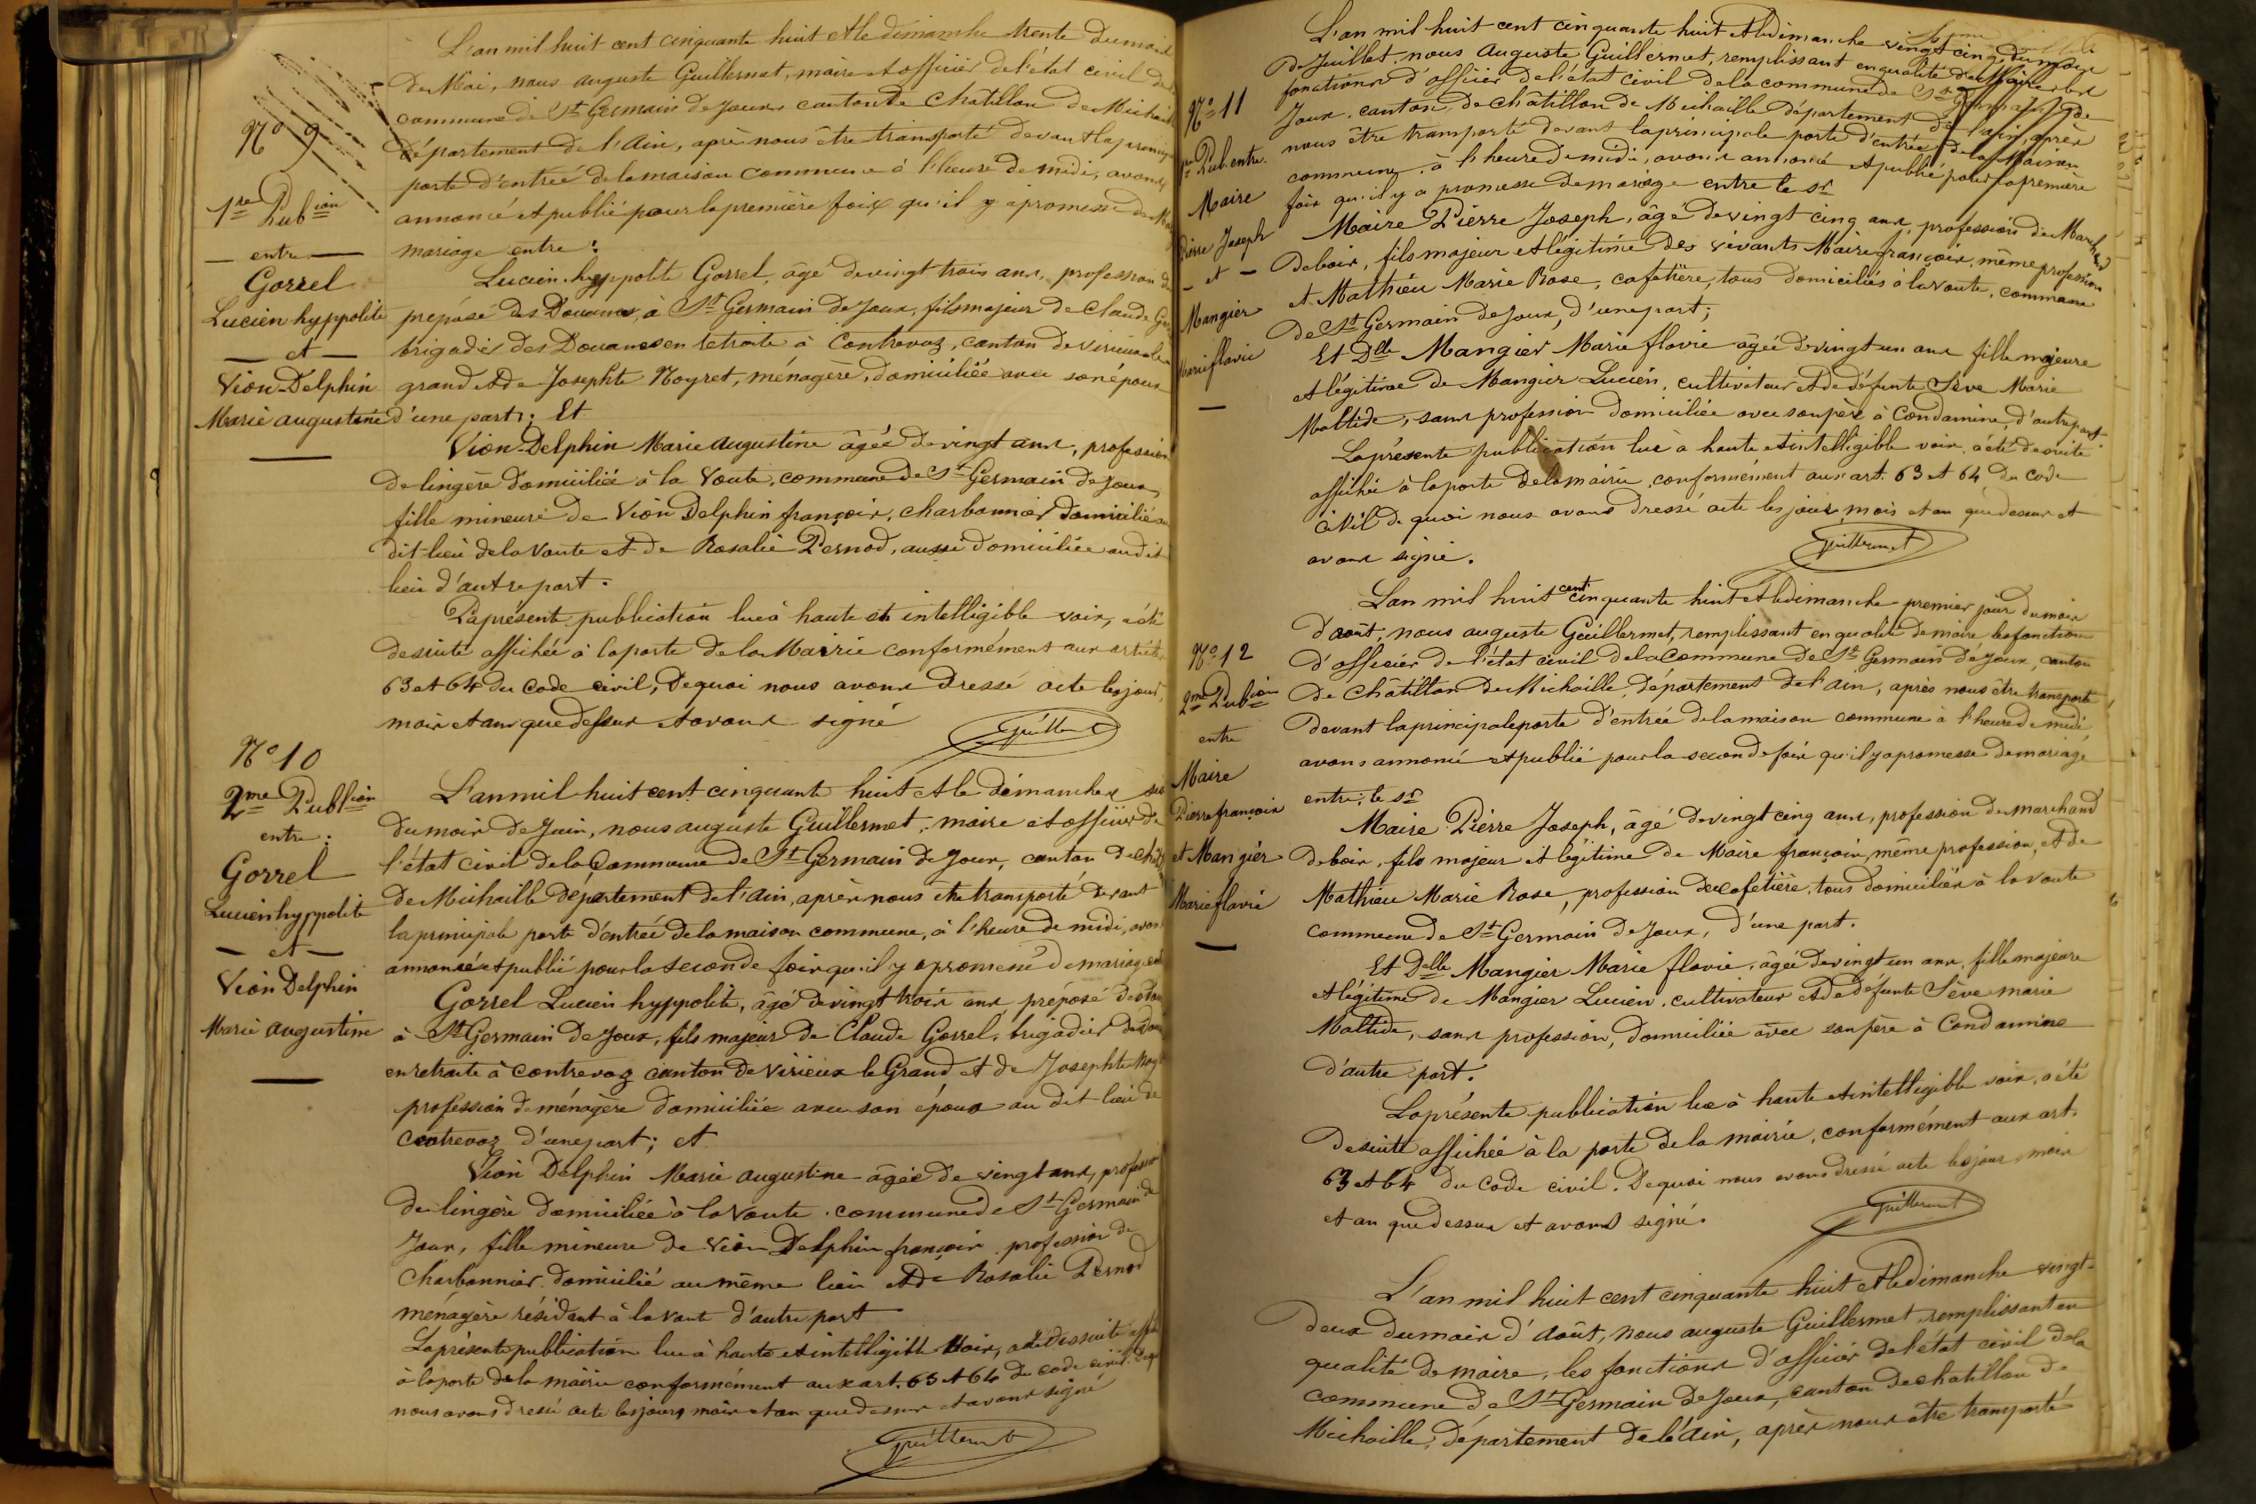 N° 9
1re Pubion
entre
Gorrel
Lucien hyppolite
et
Vion-Delphin
Marie augustine
L'an mil huit cent cinquante huit et le dimanche trente du mois
de Mai, nous auguste Guillermet, maire et officier de l'état civil de
commune de St Germain de Joux canton de Chatillon de Michaille
département de l'Ain, après nous être transporté devant la principale
porte d'entrée de la maison commune à l'heure de midi, avons
annoncé et publié pour la première fois qu'il y a promesse de
mariage entre :
Lucien hyppolite Gorrel, âgé de vingt trois ans, profession de
préposé des Douanes, à St Germain de Joux, fils majeur de Claude
brigadier des Douanes en retraite à Contrevoz, canton de Virieux le
grand et de Josephte Noyret, ménagère, domiciliée avec son époux
d'une part ; Et
Vion-Delphin Marie augustine âgée de vingt ans, profession
de lingère domiciliée à la Voute, commune de St Germain de Joux,
fille mineure de Vion Delphin françois, charbonnier domicilié au
dit-lieu de la Voute et de Rosalie Pernod, aussi domiciliée au dit
lieu d'autre part.
La présente publication lue à haute et intelligible voix, a été
de suite affichée à la porte de la Mairie conformément aux articles
63 et 64 du Code civil, De quoi nous avons Dressé acte les jour,
mois et an que dessus et avons signé
Guillermet
N° 10
2me Publion
entre :
Gorrel
Lucien hyppolite
et
Vion Delphin
Marie augustine
L'an mil huit cent cinquante huit et le dimanche six
du mois de Juin, nous auguste Guillermet, maire et officier de
l'état civil de la Commune de St Germain de Joux, canton de
de Michaille département de l'Ain, après nous être transporté devant
la principale porte d'entrée de la maison commune, à l'heure de midi, avons
annoncé et publié pour la seconde fois qu'il y a promesse de mariage
Gorrel Lucien hyppolite, âgé de vingt trois ans, préposé des
à St Germain de Joux, fils majeur de Claude Gorrel, brigadier des
en retraite à Contrevoz canton de Virieux le Grand et de Josephte
profession de ménagère domiciliée avec son époux au dit lieu de
Contrevoz d'une part ; et
Vion Delphin Marie augustine âgée de vingt ans, profession
de lingère domiciliée à la Voute, commune de St Germain de
Joux, fille mineure de Vion Delphin françois profession de
Charbonnier domicilié au même lieu et de Rosalie Pernod
ménagère résidant à la Vout d'autre part
La présente publication lue à haute et intelligible Voix, a été de suite
à la porte de la mairie conformément aux art. 63 et 64 du code civil.
nous avons dressé acte les jours mois et an que dessus et avons signé
Guillermet
N° 11
Pub entre
Maire
Pierre Joseph
et
Mangier
Marie flavie
L'an mil huit cent cinquante huit et le dimanche vingt cinq du mois
de Juillet, nous auguste Guillermet, remplissant en qualité de Maire les
fonctions d'officier de l'état civil de la commune de St Germain de
Joux, canton de Châtillon de Michaille département de l'ain, après
nous être transporté devant la principale porte d'entrée de la Maison
commune, à l'heure de midi, avons annoncé et publié pour la première
fois qu'il y a promesse de mariage entre le sr
Maire Pierre Joseph, âgé de vingt cinq ans, profession de Marchand
de bois, fils majeur et légitime des vivants Maire françois, même profession
et Mathieu Marie Rose, cafetière, tous domiciliés à la Voute, commune
de St Germain de Joux, d'une part ;
Et Dlle Mangier Marie flavie âgée de vingt un ans fille majeure
et légitime de Mangier Lucien, cultivateur et de défunte Sève Marie
Maltide, sans profession domiciliée avec son père à Condamine, d'autre part
La présente publication lue à haute et intelligible voix, a été de suite
affichée à la porte de la mairie, conformément aux art. 63 et 64 du Code
Civil de quoi nous avons Dressé acte les jour, mois et an que dessus et
avons signé.
Guillermet
N° 12
2me Publion
entre
Maire
Pierre françois
et Mangier
Marie flavie
L'an mil huit cent cinquante huit et le dimanche premier jour du mois
d'août, nous auguste Guillermet, remplissant en qualité de maire les fonctions
d'officier de l'état civil de la Commune de St Germain de Joux, canton
de Châtillon de Michaille, département de l'ain, après nous être transporté
devant la principale porte d'entrée de la maison commune à l'heure de midi
avons annoncé et publié pour la seconde fois qu'il y a promesse de mariage
entre, le sr
Maire Pierre Joseph, âgé de vingt cinq ans, profession de marchand
de bois, fils majeur et légitime de Maire françois, même profession, et de
Mathieu Marie Rose, profession de cafetière, tous domiciliés à la Voute
commune de St Germain de Joux, d'une part.
Et Delle Mangier Marie flavie, âgée de vingt un ans, fille majeure
et légitime de Mangier Lucien, cultivateur et de défunte Sève marie
Maltide, sans profession, domiciliée avec son père à Condamine
d'autre part.
La présente publication lue à haute et intelligible voix, a été
de suite affichée à la porte de la mairie, conformément aux art.
63 et 64 du Code civil. De quoi nous avons dressé acte les jour, mois
et an que dessus et avons signé.
Guillermet
L'an mil huit cent cinquante huit et le dimanche vingt-
deux du mois d'Août, nous auguste Guillermet remplissant en
qualité de maire, les fonctions d'officier de l'état civil de la
commune de St Germain de Joux, canton de chatillon de
Michaille, département de l'Ain, après nous être transporté